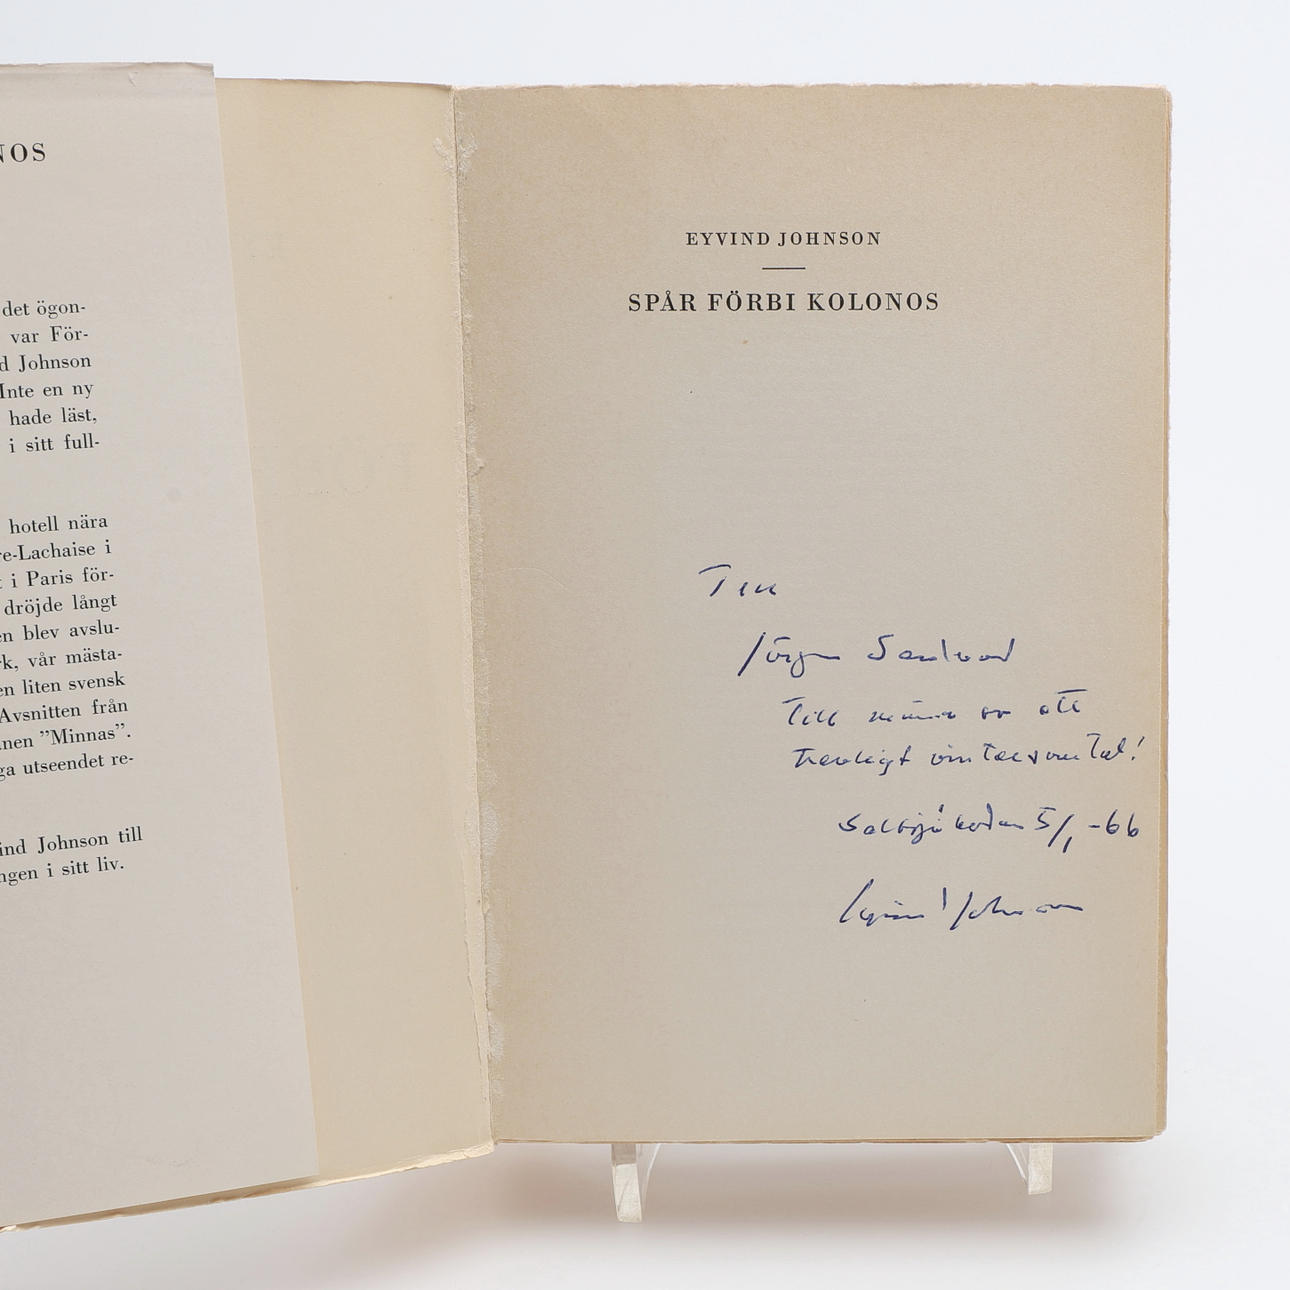 NOS
det ögon-
var För-
d Johnson
Inte en ny
hade läst,
i sitt full-
hotell nära
re-Lachaise i
t i Paris för-
dröjde långt
en blev avslu-
k, vår mästa-
en liten svensk
Avsnitten från
anen ”Minnas”.
ga utseendet re-
ind Johnson till
ngen i sitt liv.
EYVIND JOHNSON
SPÅR FÖRBI KOLONOS
Till
Jörgen
Till minne av ett
trevligt vintersamtal!
Saltsjöbaden 5/1 -66
Eyvind Johnson